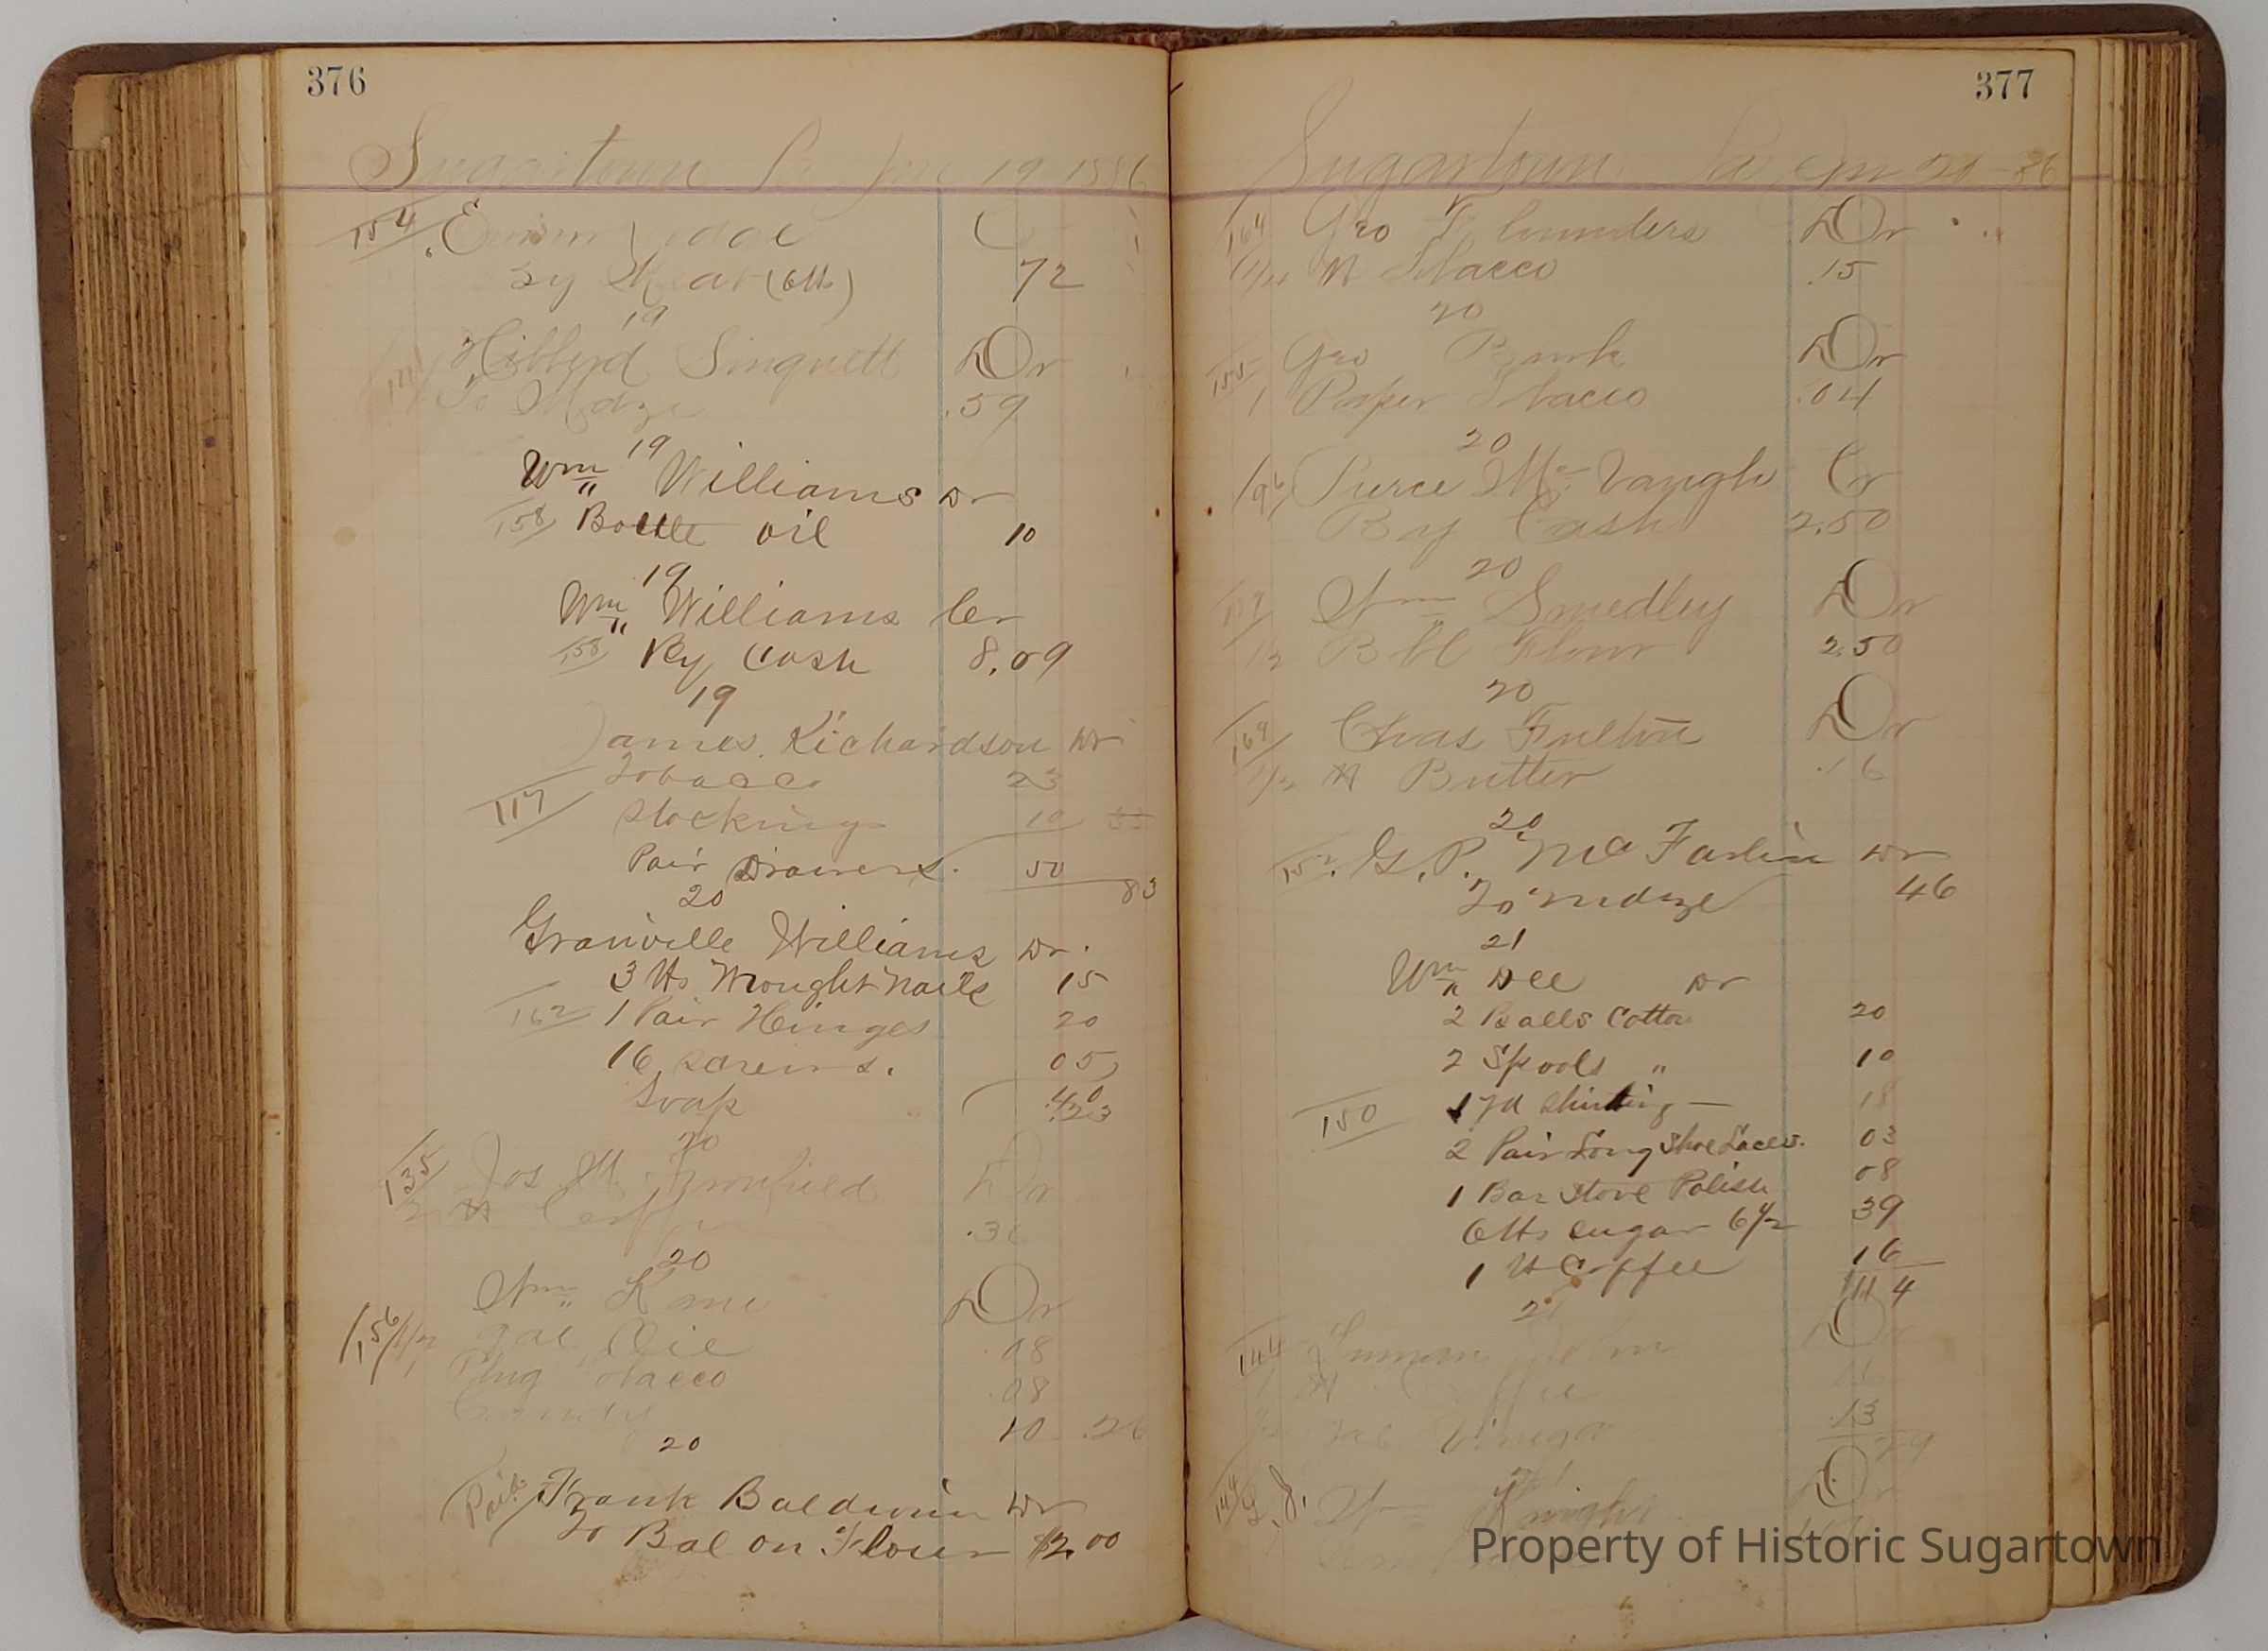 376
Sugartown Pa Jan 19 1886
154
By Meat (6 ℔)
72
19
Hibberd Singuett Dr
To Mdze .59
19
Wm Williams Dr
158 Bottle oil 10
19
Wm Williams Cr
158 By Cash 8.09
19
James Richardson Dr
Tobacco 23
117
Stocking 10
Pair Drawers. 50 83
20
Granville Williams Dr.
3 ℔s Wrought nails 15
162 1 Pair Hinges 20
16 screws. 05
Soap
20
135 Jos M. Dr
2 ℔
20
Wm Kane Dr
156 1/2 gal Oil .08
1 Plug Tobacco .08
Candy 10 .26
20
Paid Frank Baldwin Dr
To Bal on Flour $2.00
377
Sugartown Pa Jan 20 - 86
164 Geo Flounders Dr
℔ Tobacco .15
20
155 Geo Burk Dr
1 Paper Tobacco .04
20
Pierce Mc Vaugh Cr
By Cash 2.50
20
Wm Smedley Dr
1/2 Bbl Flour 2.50
20
169 Chas Fulton Dr
1/2 ℔ Butter .16
20
G. P. Mc Farlin Dr
To mdze 46
21
Wm Dee Dr
2 Balls Cotton 20
2 Spools " 10
150 1 yd Shirting — 18
2 Pair Long Shoe Laces. 03
1 Bar Stove Polish 08
6 ℔s sugar 6 1/2 39
1 ℔ Coffee 16
1 14
21
144 Truman
1 ℔ Coffee
gal Vinegar .13
29
21
144 Wm Knight Dr
Property of Historic Sugartown